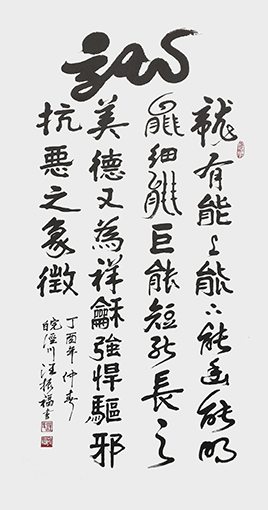 龍
龍有能上能下能幽能明
能細能巨能短能長之
美德又為祥龢強悍驅邪
抗悪之象徵
丁酉年仲春
皖涇川汪振福書